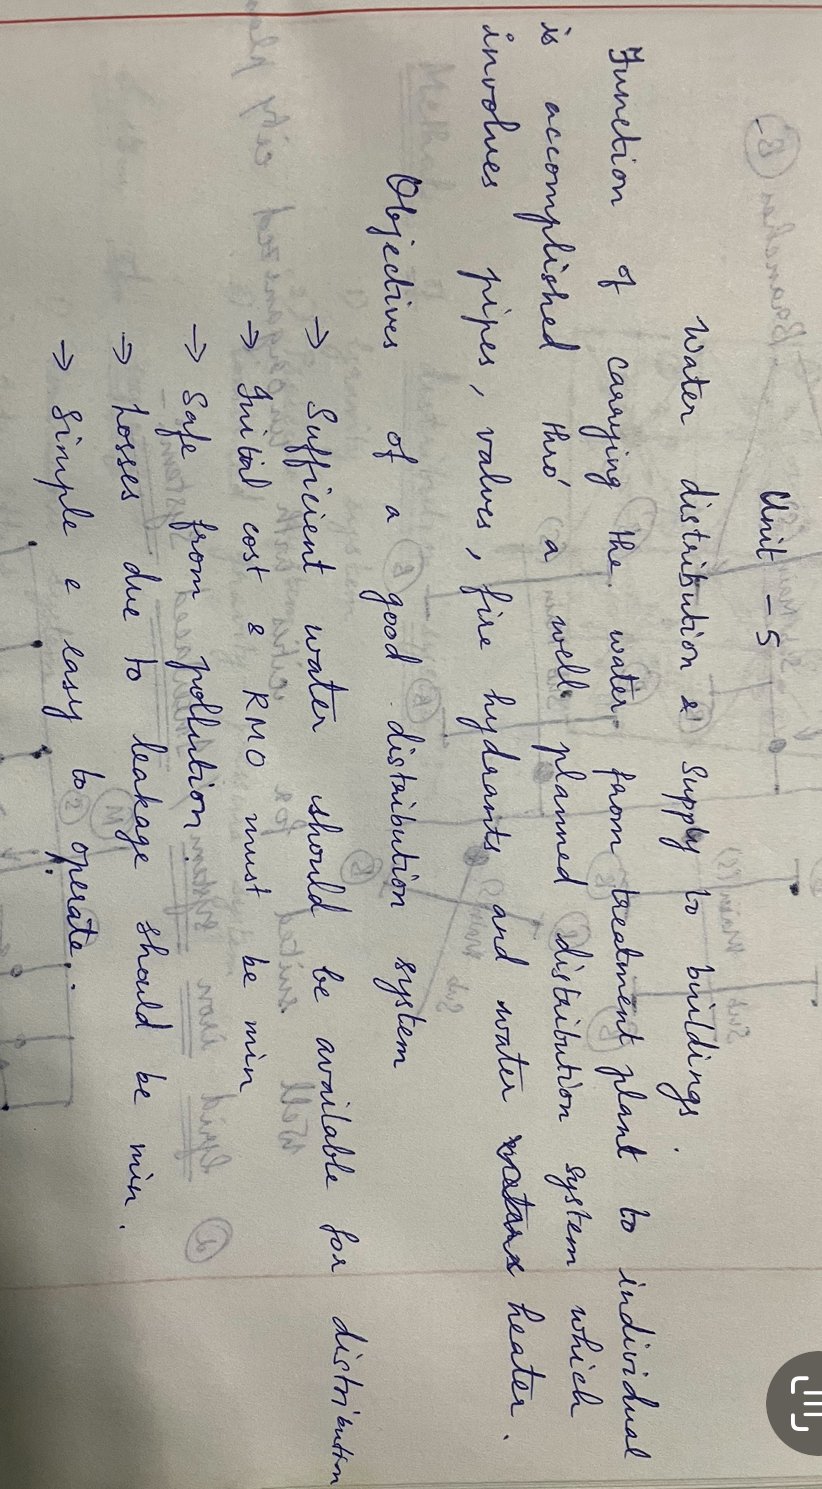 Unit - 5
Water distribution & supply to buildings.
Function of carrying the water from treatment plant to individual
is accomplished thro' a well planned distribution system which
involves pipes, valves, fire hydrants and water heater.
Objectives of a good distribution system
→ Sufficient water should be available for distribution
→ Initial cost & RMO must be min
→ Safe from pollution.
→ Losses due to leakage should be min.
→ Simple & easy to operate.